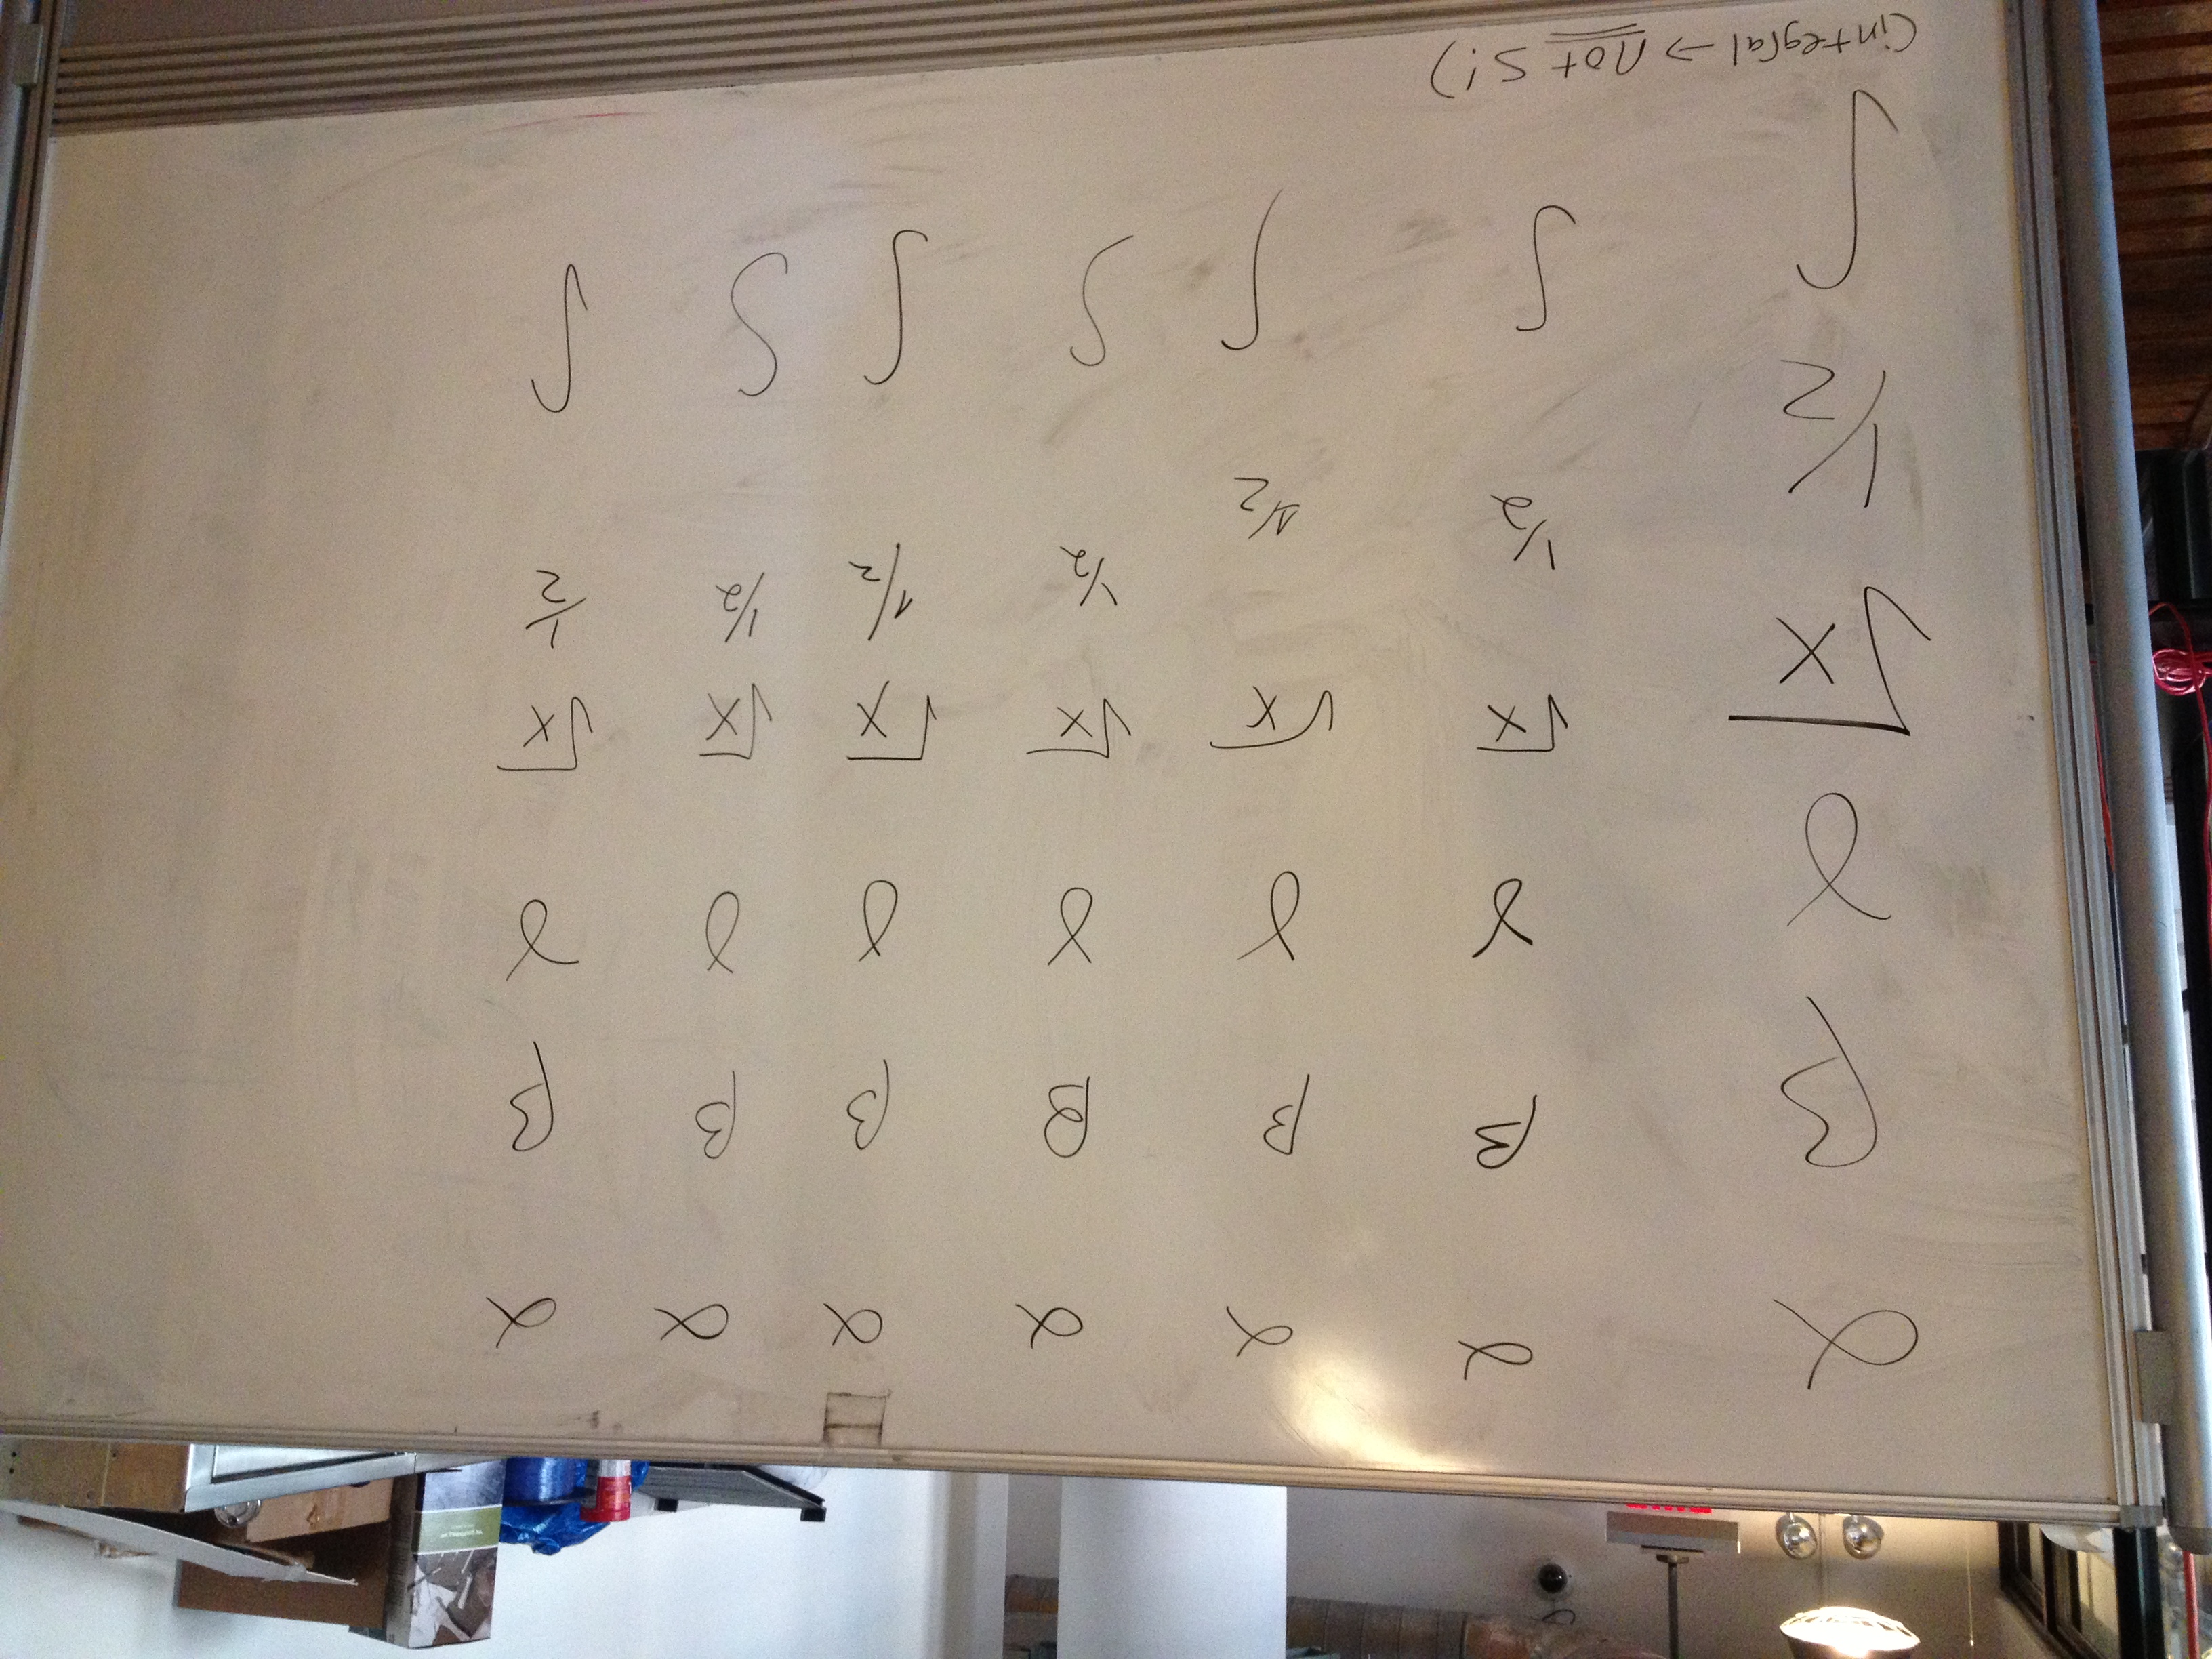 α α α α α α α
β β β β β β β
γ γ γ γ γ γ γ
√x √x √x √x √x √x √x
1/2 1/2 1/2 1/2 1/2 1/2 1/2
∫ ∫ ∫ ∫ ∫ ∫ ∫
(integral → not S!)